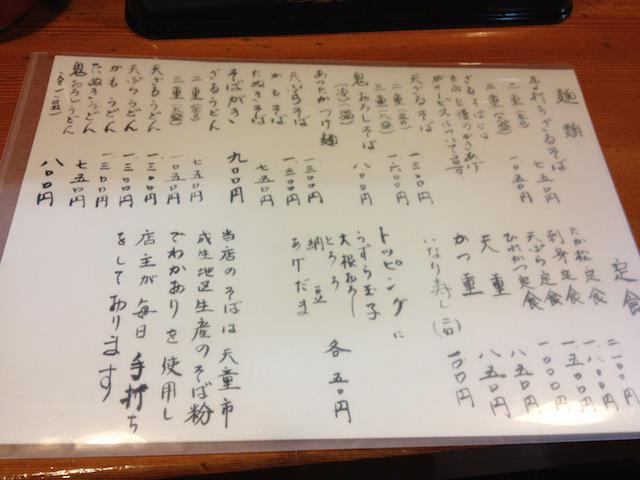 麺類
手打ちざるそば 七五〇円
二重(普) 一〇五〇円
三重(大盛)
ざるそばには
当店自慢のかきあげ
がサービスについてます
天ざるそば 一三〇〇円
二重(普) 一六〇〇円
三重(大盛)
鬼おろしそば 八〇〇円
(冷)(温)
あったかつけ麺
天ぷらそば 一三〇〇円
かもそば 一三〇〇円
たぬきそば 七五〇円
そばがき 九〇〇円
ざるうどん 七五〇円
二重(普) 一〇五〇円
三重(大盛)
天ざるうどん 一三〇〇円
天ぷらうどん 一三〇〇円
かもうどん 一三〇〇円
たぬきうどん 七五〇円
鬼おろしうどん 八〇〇円
(冷)(温)
定食
たか松定食 二一〇〇円
刺身定食 一八〇〇円
天ぷら定食 一五〇〇円
ひれかつ定食 一〇〇〇円
天重 八五〇円
かつ重 八五〇円
いなり寿し(二ヶ) 一〇〇円
トッピングに
うずら玉子
大根おろし
とろろ
納豆
あげだま
各五〇円
当店のそばは天童市
成生地区生産のそば粉
でわかおりを使用し
店主が毎日手打ち
をしております